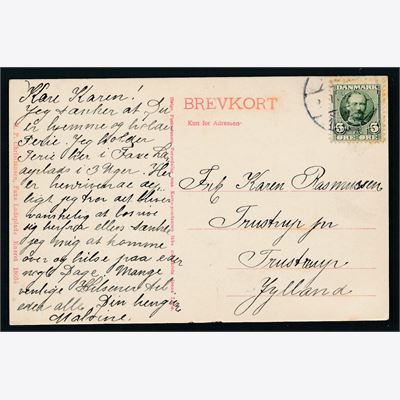 Kære Karen!
Jeg tænker at Du
er hjemme og holder
Ferie. Jeg holder
Ferie her i Faxe La-
deplads i 3 Uger. Her
er henrivende dej-
ligt jeg tror det bliver
vanskelig at losrive
sig herfra ellers tænker
jeg mig at komme
over og hilse paa eder
nogle Dage. Mange
venlige Hilsener til
eder alle. Din hengivne
Malvine.
BREVKORT
Kun for Adressen
DANMARK
5 5
ØRE ØRE
Frk. Karen Rasmussen
Trustrup pr
Trustrup
Jylland